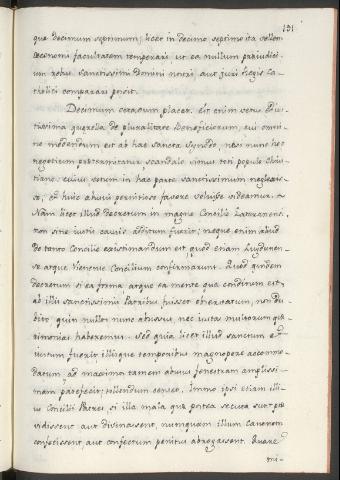 191
que decimum septimum; licet in decimo septimo ita vellem
œconomi facultatem temperari, ut ea nullum præiudici-
um rebus sanctissimi Domini nostri, aut Juri Regis Ca-
tholici comparari possit.
Decimum octavum placet. Est enim vetus Diu-
tissima querella de pluralitate Beneficiorum, cui omni-
no medendum est ab hac Sancta Synodo, ne si nunc hoc
negotium prætermittatur, scandalo simus toti populo Chris-
tiano, cuius votum in hac parte sanctissimum neglexis-
se, et huic abusui pernitioso favere voluisse videamur.
Nam licet illud decretum in magno Concilio Lateranensi
non sine iustis causis additum fuerit; neque enim aliud
De tanto Concilio existimandum est, quod etiam Lugdunen-
se atque Vienense Concilium confirmarunt. Quod quidem
decretum si ea forma atque ea mente qua conditum est,
ab illis sanctissimis Patribus fuisset observatum, non du-
bito quin nullos nunc abusus, nec iustas multorum que-
rimonias haberemus. Sed quia licet illud sanctum et
iustum fuerit, illisque temporibus magnopere accommo-
datum, ad maximos tamen abusus fenestram amplissi-
mam patefecit; tollendum censeo. Immo ipsi etiam illi-
us Concilii Patres, si illa mala quæ postea secuta sunt præ-
vidissent, aut divinassent, numquam illum canonem
confecissent, aut confectum penitus abrogassent. Quare
mi-